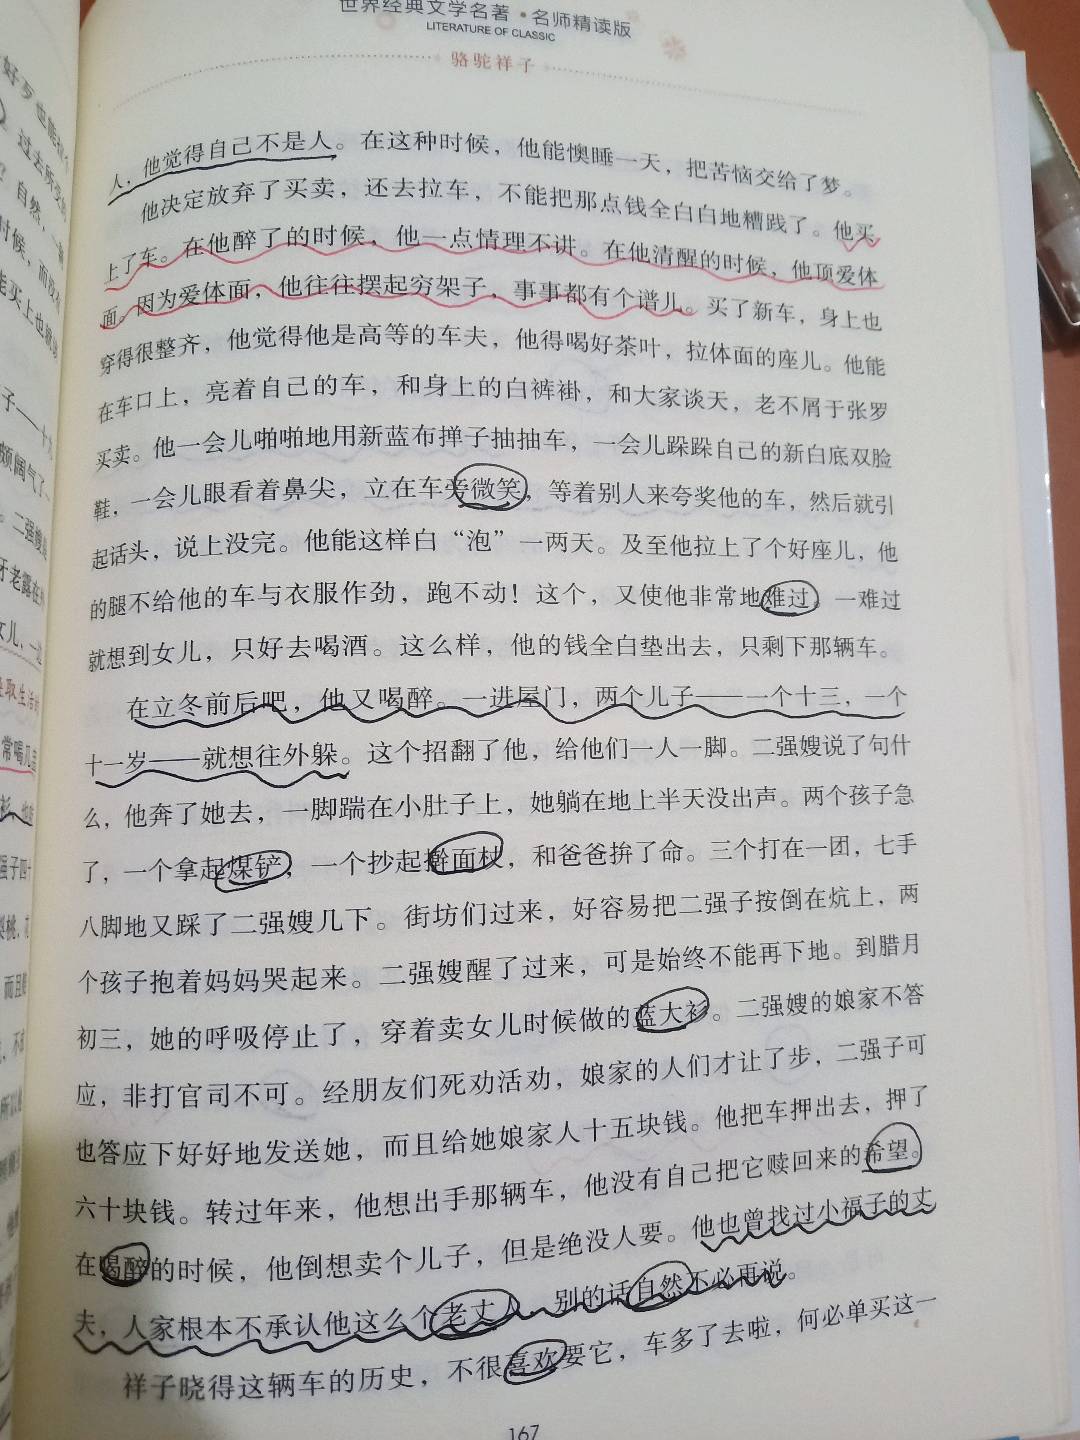 世界经典文学名著·名师精读版
LITERATURE OF CLASSIC
骆驼祥子
人，他觉得自己不是人。在这种时候，他能懊睡一天，把苦恼交给了梦。
他决定放弃了买卖，还去拉车，不能把那点钱全白白地糟践了。他买
上了车。在他醉了的时候，他一点情理不讲。在他清醒的时候，他顶爱体
面。因为爱体面，他往往摆起穷架子，事事都有个谱儿。买了新车，身上也
穿得很整齐，他觉得他是高等的车夫，他得喝好茶叶，拉体面的座儿。他能
在车口上，亮着自己的车，和身上的白裤褂，和大家谈天，老不屑于张罗
买卖。他一会儿啪啪地用新蓝布掸子抽抽车，一会儿跺跺自己的新白底双脸
鞋，一会儿眼看着鼻尖，立在车旁微笑，等着别人来夸奖他的车，然后就引
起话头，说上没完。他能这样白“泡”一两天。及至他拉上了个好座儿，他
的腿不给他的车与衣服作劲，跑不动！这个，又使他非常地难过。一难过
就想到女儿，只好去喝酒。这么样，他的钱全白垫出去，只剩下那辆车。
在立冬前后吧，他又喝醉。一进屋门，两个儿子——一个十三，一个
十一岁——就想往外躲。这个招翻了他，给他们一人一脚。二强嫂说了句什
么，他奔了她去，一脚踹在小肚子上，她躺在地上半天没出声。两个孩子急
了，一个拿起煤铲，一个抄起擀面杖，和爸爸拚了命。三个打在一团，七手
八脚地又踩了二强嫂几下。街坊们过来，好容易把二强子按倒在炕上，两
个孩子抱着妈妈哭起来。二强嫂醒了过来，可是始终不能再下地。到腊月
初三，她的呼吸停止了，穿着卖女儿时候做的蓝大衫。二强嫂的娘家不答
应，非打官司不可。经朋友们死劝活劝，娘家的人们才让了步，二强子可
也答应下好好地发送她，而且给她娘家人十五块钱。他把车押出去，押了
六十块钱。转过年来，他想出手那辆车，他没有自己把它赎回来的希望。
在喝醉的时候，他倒想卖个儿子，但是绝没人要。他也曾找过小福子的丈
夫，人家根本不承认他这么个老丈人，别的话自然不必再说。
祥子晓得这辆车的历史，不很喜欢要它，车多了去啦，何必单买这一
167